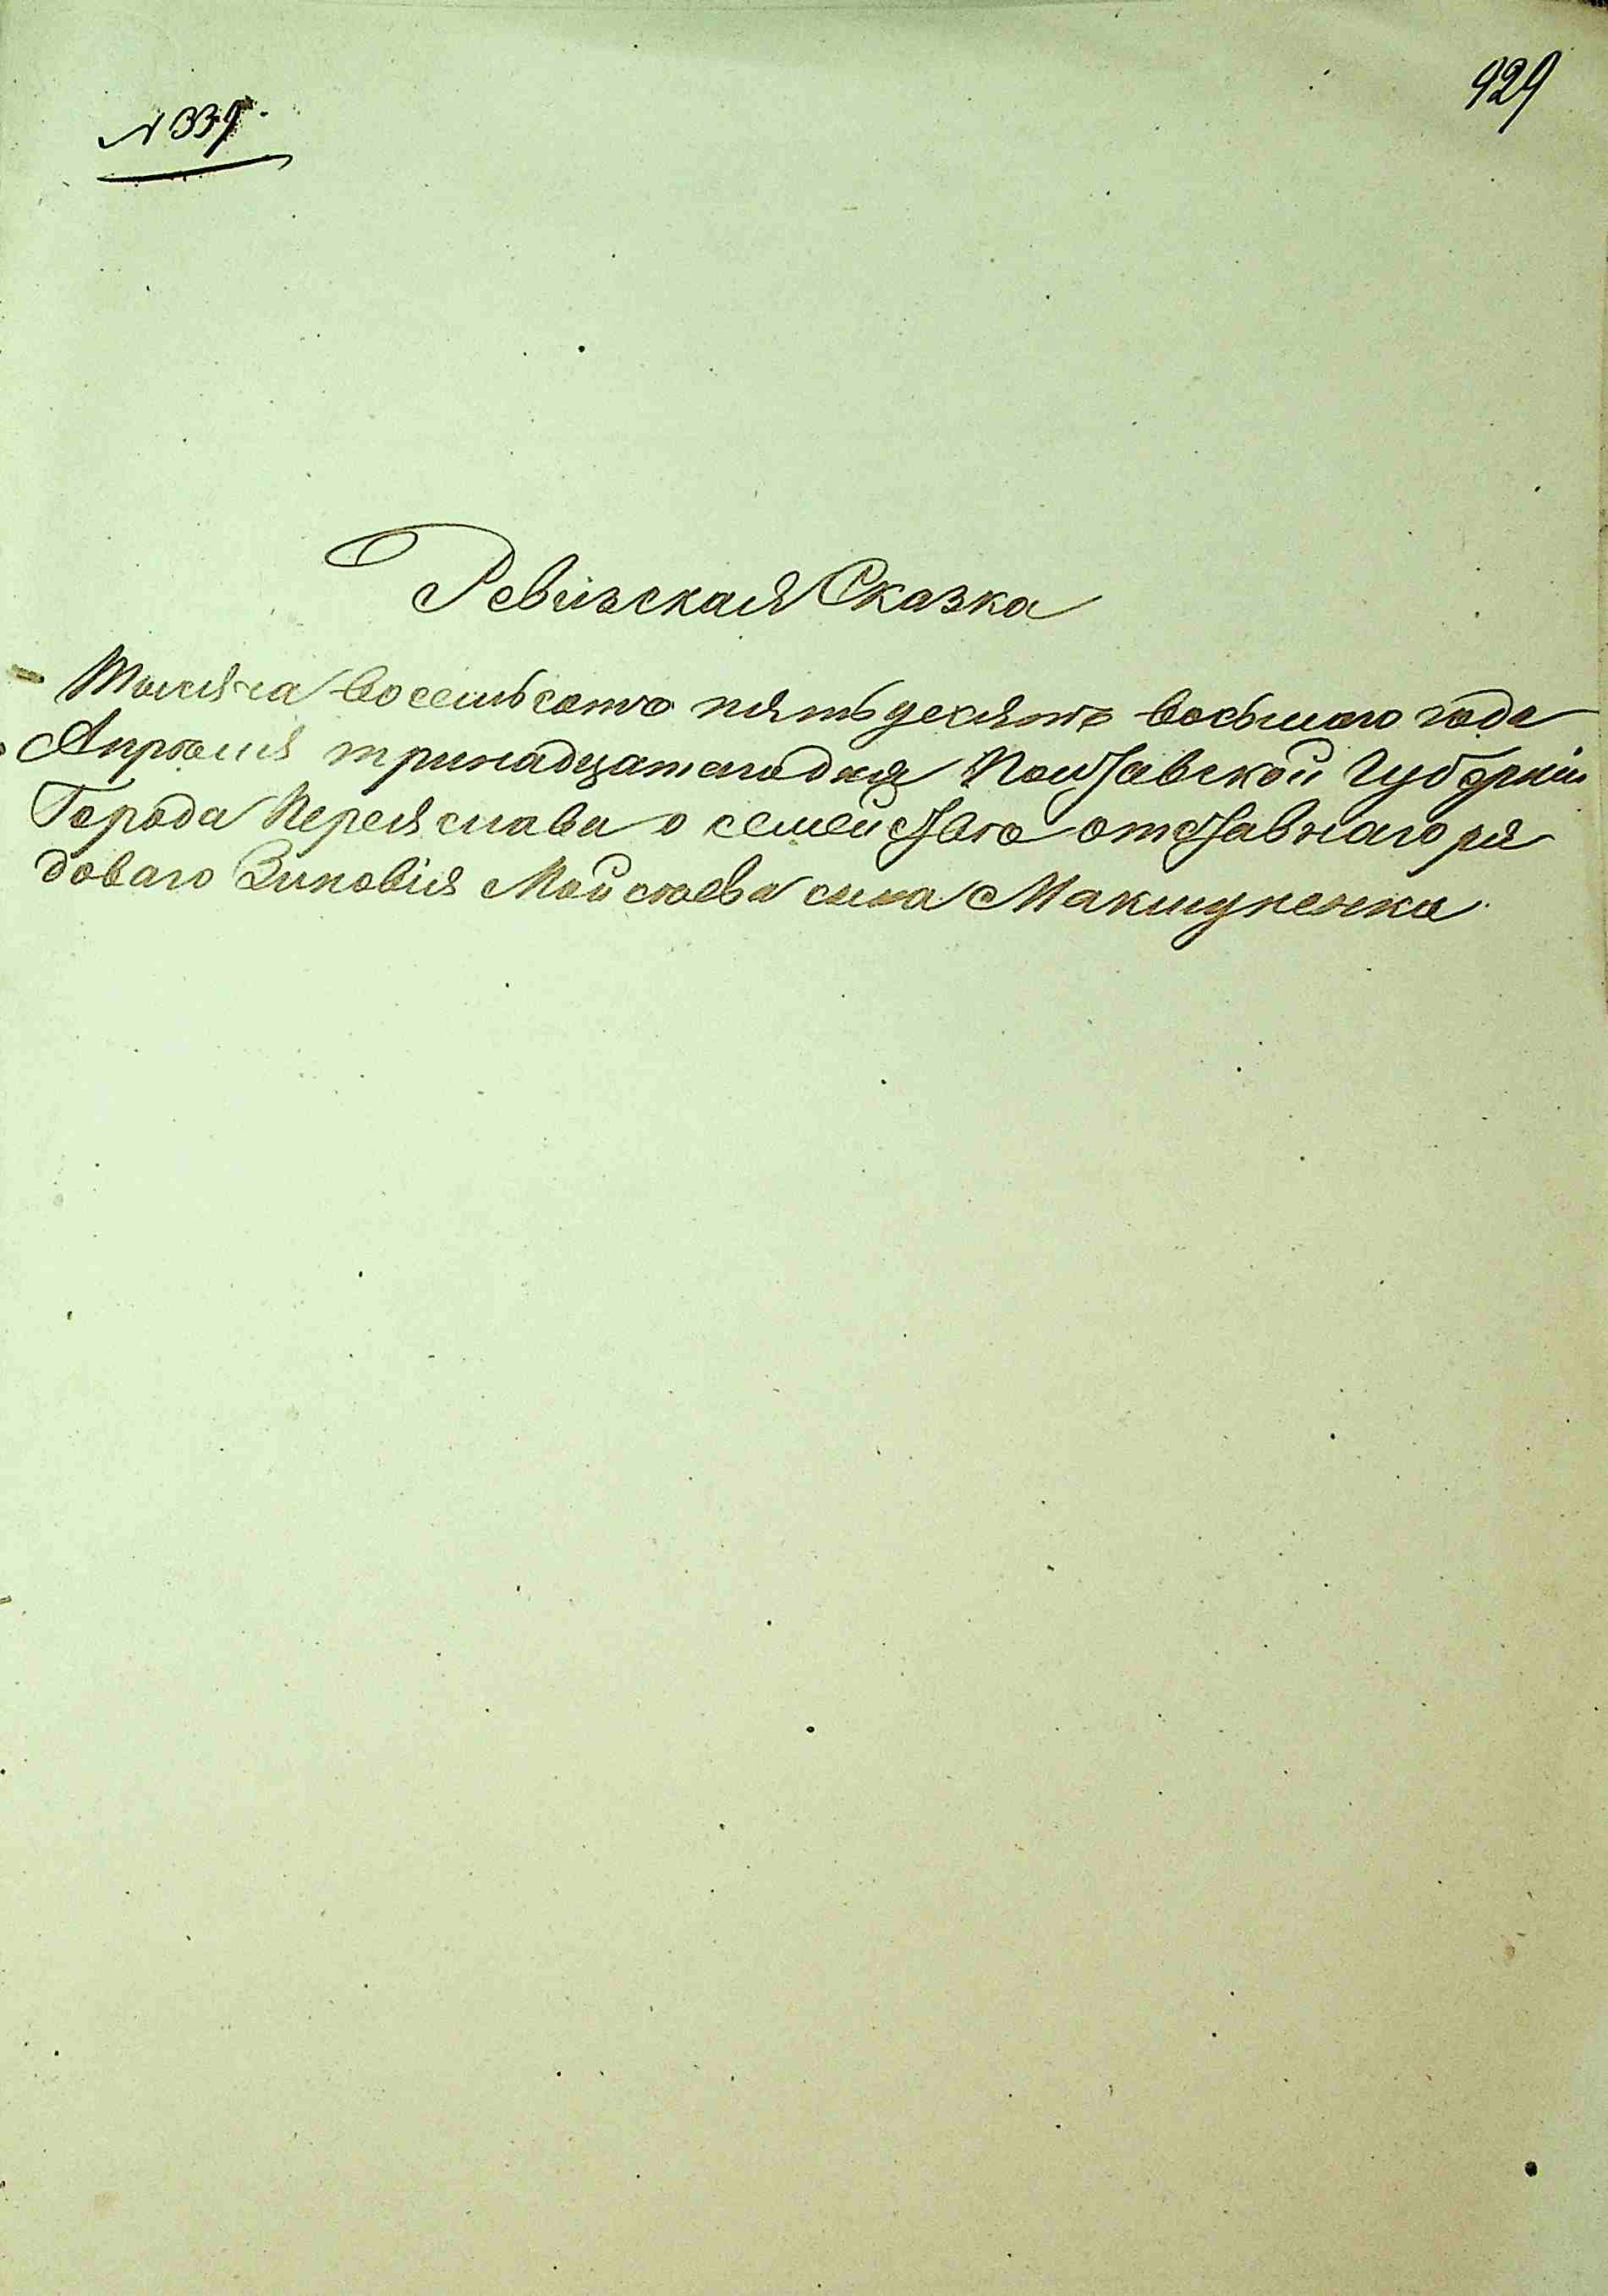 929
N 337.
Ревизская Сказка
Тысяча восемьсотъ пятьдесятъ восьмаго года
Апрѣля тринадцатаго дня Полтавской Губерніи
Города Переяслава о семействѣ отставнаго ря
доваго Зиновія Мойсѣева сина Макшуненка.